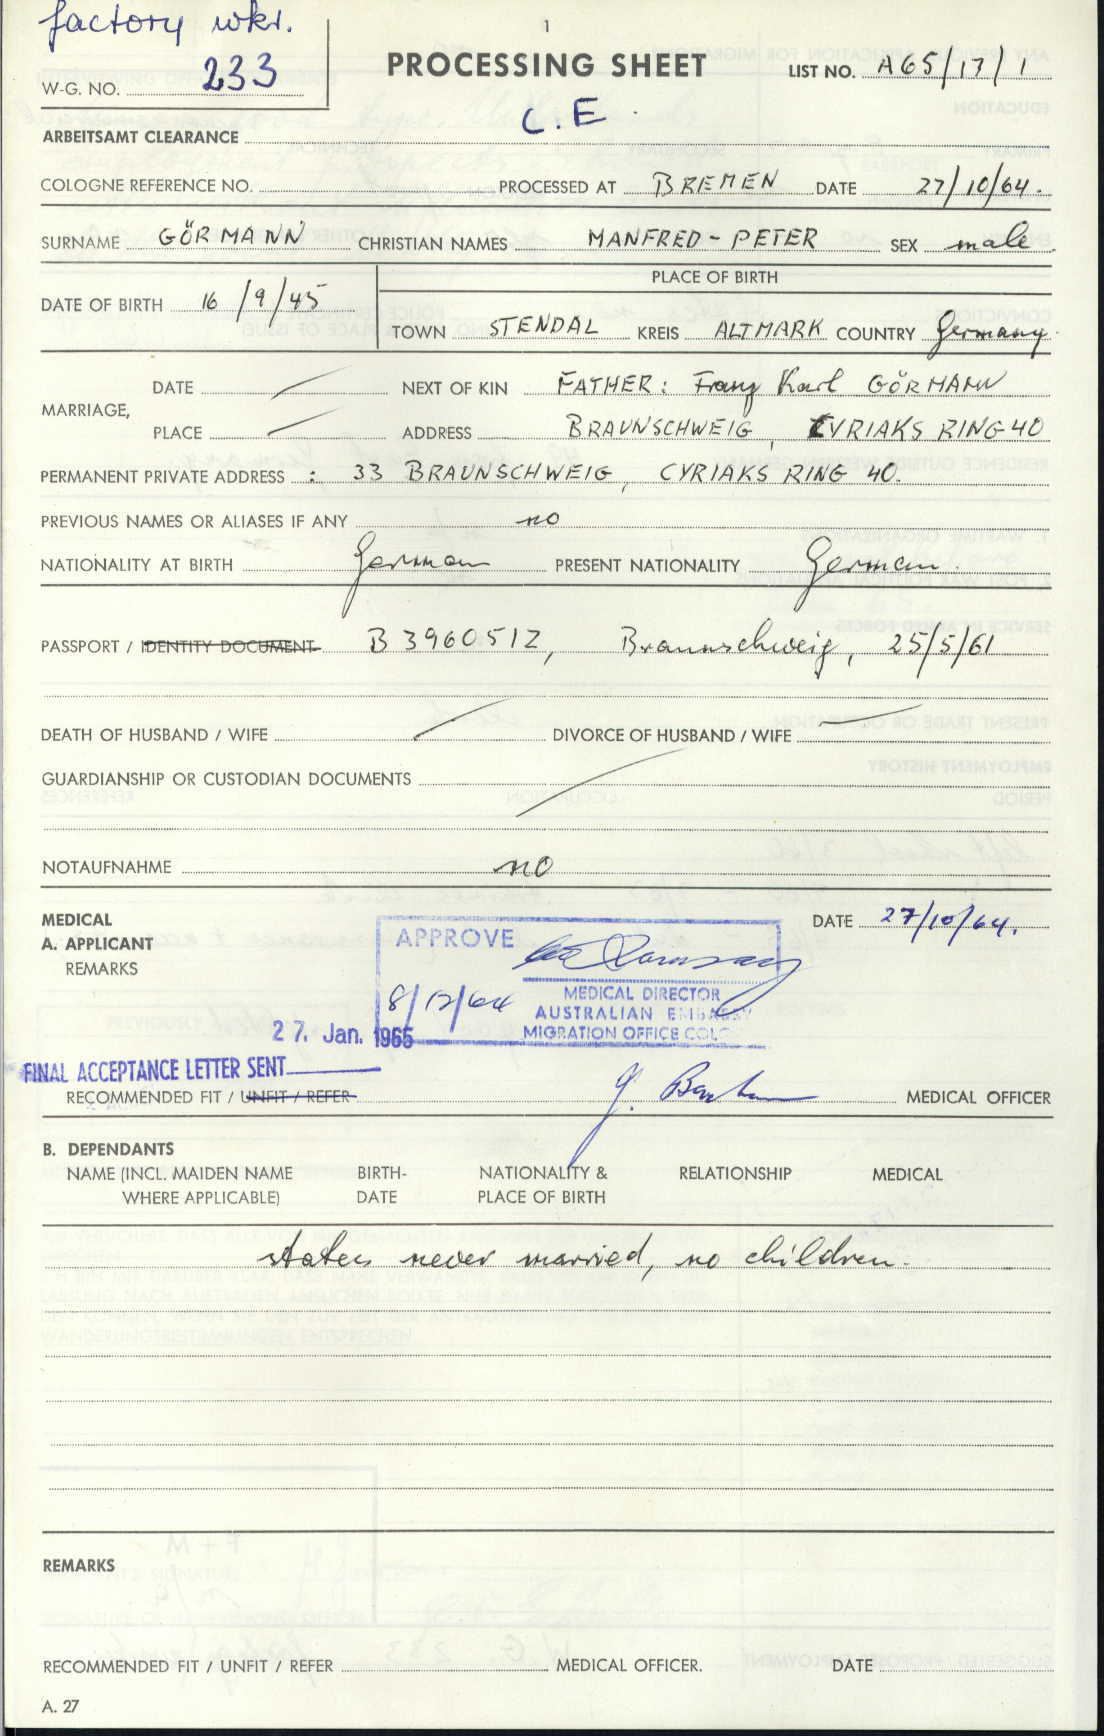 factory wkr.
1
W-G. NO. 233
PROCESSING SHEET
LIST NO. A65/17/1
C.E.
ARBEITSAMT CLEARANCE
COLOGNE REFERENCE NO. PROCESSED AT BREMEN DATE 27/10/64.
SURNAME GÖRMANN CHRISTIAN NAMES MANFRED-PETER SEX male
PLACE OF BIRTH
DATE OF BIRTH 16/9/45
TOWN STENDAL KREIS ALTMARK COUNTRY Germany.
MARRIAGE,
DATE NEXT OF KIN FATHER: Franz Karl GÖRMANN
PLACE ADDRESS BRAUNSCHWEIG, CYRIAKS RING 40
PERMANENT PRIVATE ADDRESS : 33 BRAUNSCHWEIG, CYRIAKS RING 40.
PREVIOUS NAMES OR ALIASES IF ANY no
NATIONALITY AT BIRTH German PRESENT NATIONALITY German.
PASSPORT / IDENTITY DOCUMENT B 3960512, Braunschweig, 25/5/61
DEATH OF HUSBAND / WIFE DIVORCE OF HUSBAND / WIFE
GUARDIANSHIP OR CUSTODIAN DOCUMENTS
NOTAUFNAHME no
MEDICAL DATE 27/10/64.
A. APPLICANT
REMARKS
APPROVE
8/12/64
MEDICAL DIRECTOR
AUSTRALIAN EMBASSY
MIGRATION OFFICE COLO
27. Jan. 1965
FINAL ACCEPTANCE LETTER SENT
RECOMMENDED FIT / UNFIT / REFER MEDICAL OFFICER
B. DEPENDANTS
NAME (INCL. MAIDEN NAME BIRTH- NATIONALITY & RELATIONSHIP MEDICAL
WHERE APPLICABLE) DATE PLACE OF BIRTH
states never married, no children.
REMARKS
RECOMMENDED FIT / UNFIT / REFER MEDICAL OFFICER. DATE
A. 27